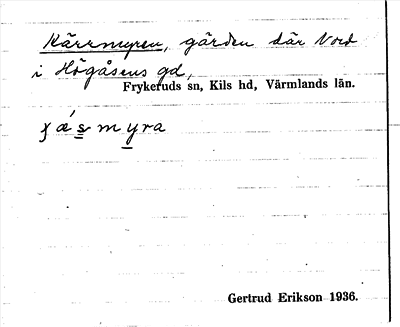 Kärrmyren, gården där Nord
i Högåsens gd,
Frykeruds sn, Kils hd, Värmlands län.
Gertrud Erikson 1936.